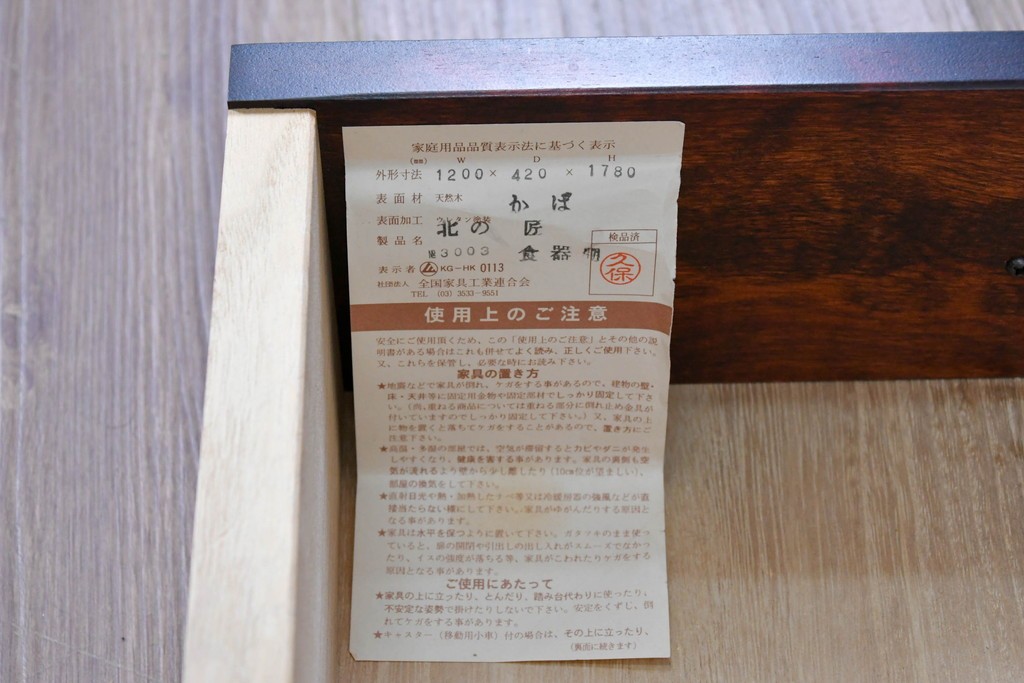 家庭用品品質表示法に基づく表示
(mm) W D H
外形寸法 1200× 420 × 1780
表面材 天然木 かば
表面加工 ウレタン塗装
製品名 北の匠
3003 食器棚
検品済
久保
表示者 KG-HK 0113
社団法人 全国家具工業連合会
TEL (03) 3533-9551
使用上のご注意
安全にご使用頂くため、この「使用上のご注意」とその他の説
明書がある場合はこれも併せてよく読み、正しくご使用下さい。
又、これらを保管し、必要な時にお読み下さい。
家具の置き方
★地震などで家具が倒れ、ケガをする事があるので、建物の壁・
床・天井等に固定用金物や固定部材でしっかり固定して下さ
い。(尚、重ねる商品については重ねる部分に倒れ止め金具が
付いていますのでしっかり固定して下さい。)又、家具の上
に物を置くと落ちてケガをすることがあるので、置き方にご
注意下さい。
★高温・多湿の部屋では、空気が滞留するとカビやダニが発生
しやすくなり、健康を害する事があります。家具の裏側も空
気が流れるよう壁から少し離したり(10cm位が望ましい)、
部屋の換気をして下さい。
★直射日光や熱・加熱したナベ等又は冷暖房器の強風などが直
接当たらない様にして下さい。家具がゆがんだりする原因と
なる事があります。
★家具は水平を保つように置いて下さい。ガタツキのまま使っ
ていると、扉の開閉や引出しの出し入れがスムーズでなかっ
たり、イスの強度が落ちる等、家具がこわれたりケガをする
原因となる事があります。
ご使用にあたって
★家具の上に立ったり、とんだり、踏み台代わりに使ったり、
不安定な姿勢で掛けたりしないで下さい。安定をくずし、倒
れてケガをする事があります。
★キャスター(移動用小車)付の場合は、その上に立ったり、
(裏面に続きます)